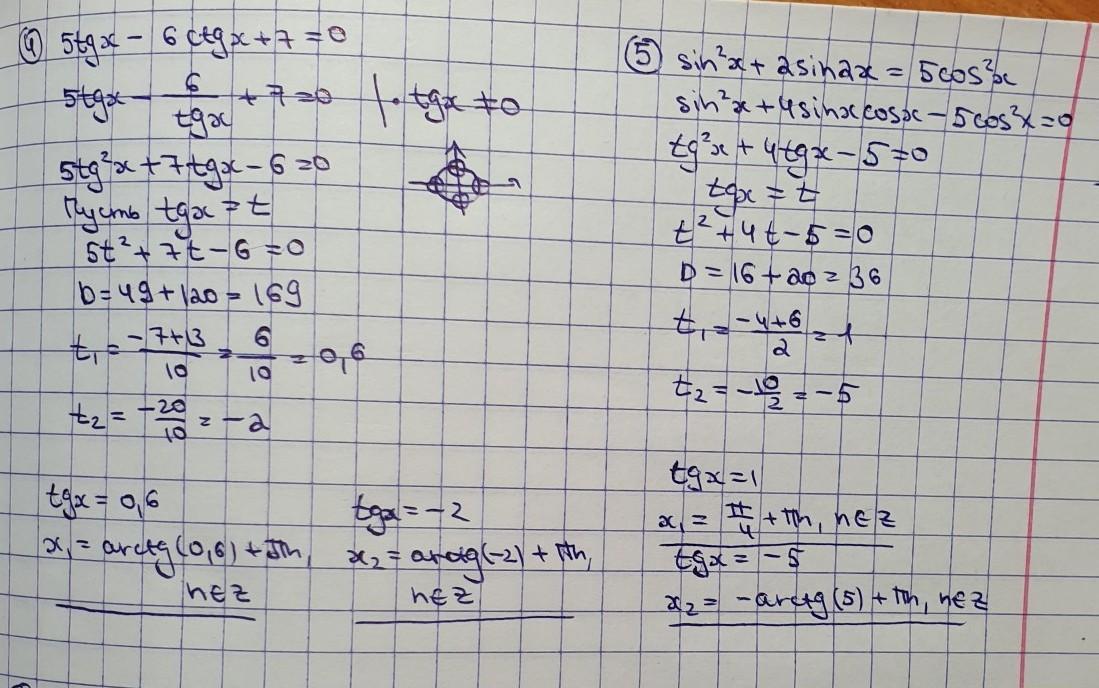 ④ 5tgx - 6ctgx + 7 = 0
5tgx - 6/tgx + 7 = 0 | · tgx ≠ 0
5tg²x + 7tgx - 6 = 0
Пусть tgx = t
5t² + 7t - 6 = 0
D = 49 + 120 = 169
t₁ = (-7+13)/10 = 6/10 = 0,6
t₂ = -20/10 = -2
tgx = 0,6
x₁ = arctg(0,6) + πn,
n∈z
tgx = -2
x₂ = arctg(-2) + πn,
n∈z
⑤ sin²x + 2sin2x = 5cos²x
sin²x + 4sinxcosx - 5cos²x = 0
tg²x + 4tgx - 5 = 0
tgx = t
t² + 4t - 5 = 0
D = 16 + 20 = 36
t₁ = (-4+6)/2 = 1
t₂ = -10/2 = -5
tgx = 1
x₁ = π/4 + πn, n∈z
tgx = -5
x₂ = -arctg(5) + πn, n∈z